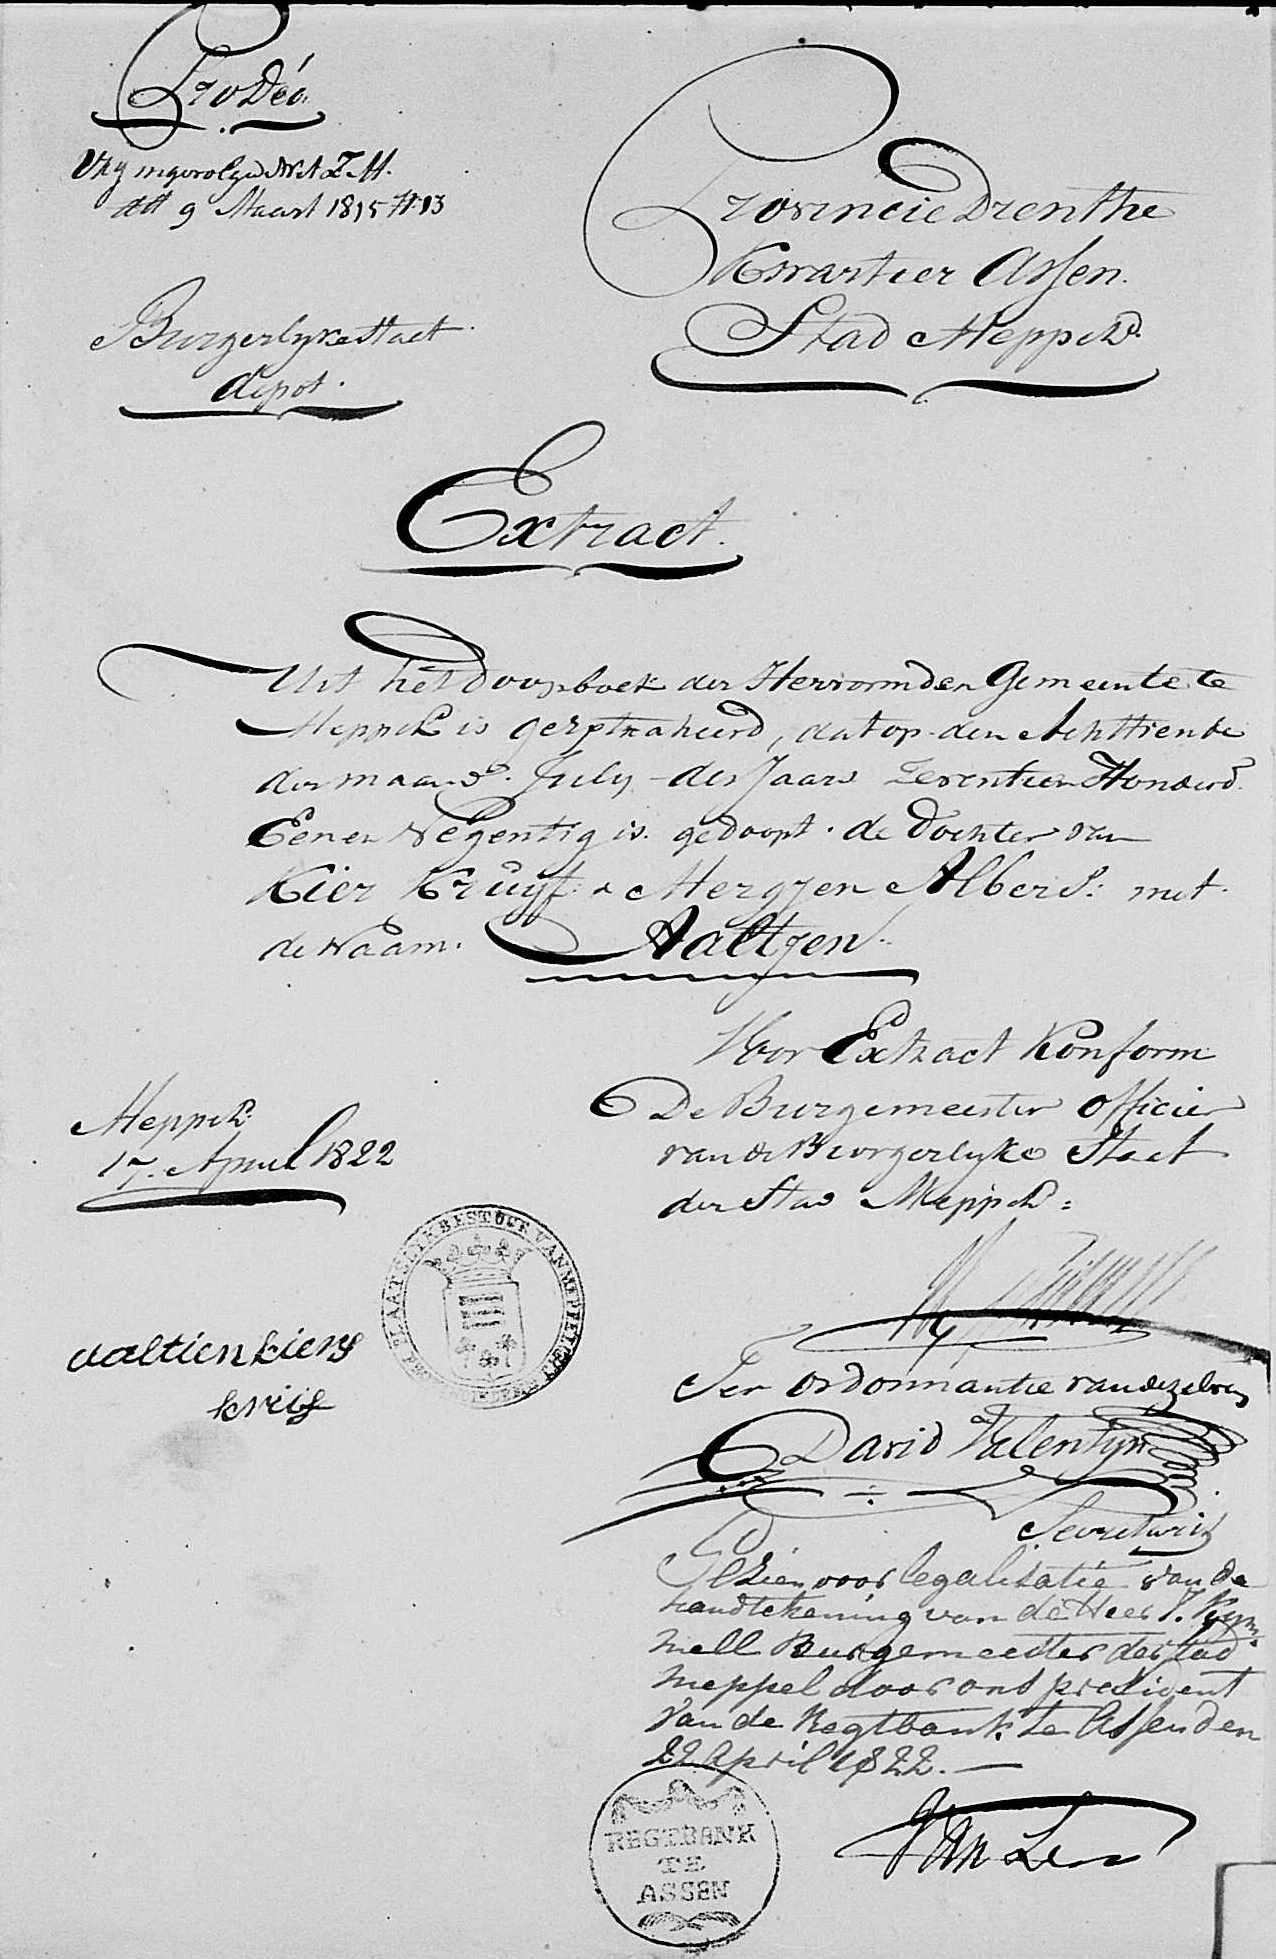 Pro Deo.
Vrij ingevolge Wet Z.M.
dd 9 Maart 1815 N 13
Provincie Drenthe
Kwartier Assen.
Stad Meppel.
Burgerlyke Staet
depot.
Extract.
Uit het Doopboek der Hervormden Gemeente te
Meppel is geextraheerd, dat op den Achttiende
der maand July des Jaars Zeventien Honderd
Een en Negentig is gedoopt de Dochter van
Kier Kruyf & Mergjen Albers: met
de Naam. Aaltjen.
Voor Extract Konform
De Burgemeester officier
van de Burgerlyke Staet
der Stad Meppel:
Meppel
17. April 1822
PLAATSLYK BESTUUR VAN MEPPEL
aaltien kiers
kruif
Ter ordonnantie van dezelven
David Valentyn
Secretaris
Gezien voor legalisatie van de
handtekening van de Heer J. Kym-
mell Burgemeester der stad
meppel door ons president
van de Regtbank te Assen den
22 April 1822. —
REGTBANK
TE
ASSEN